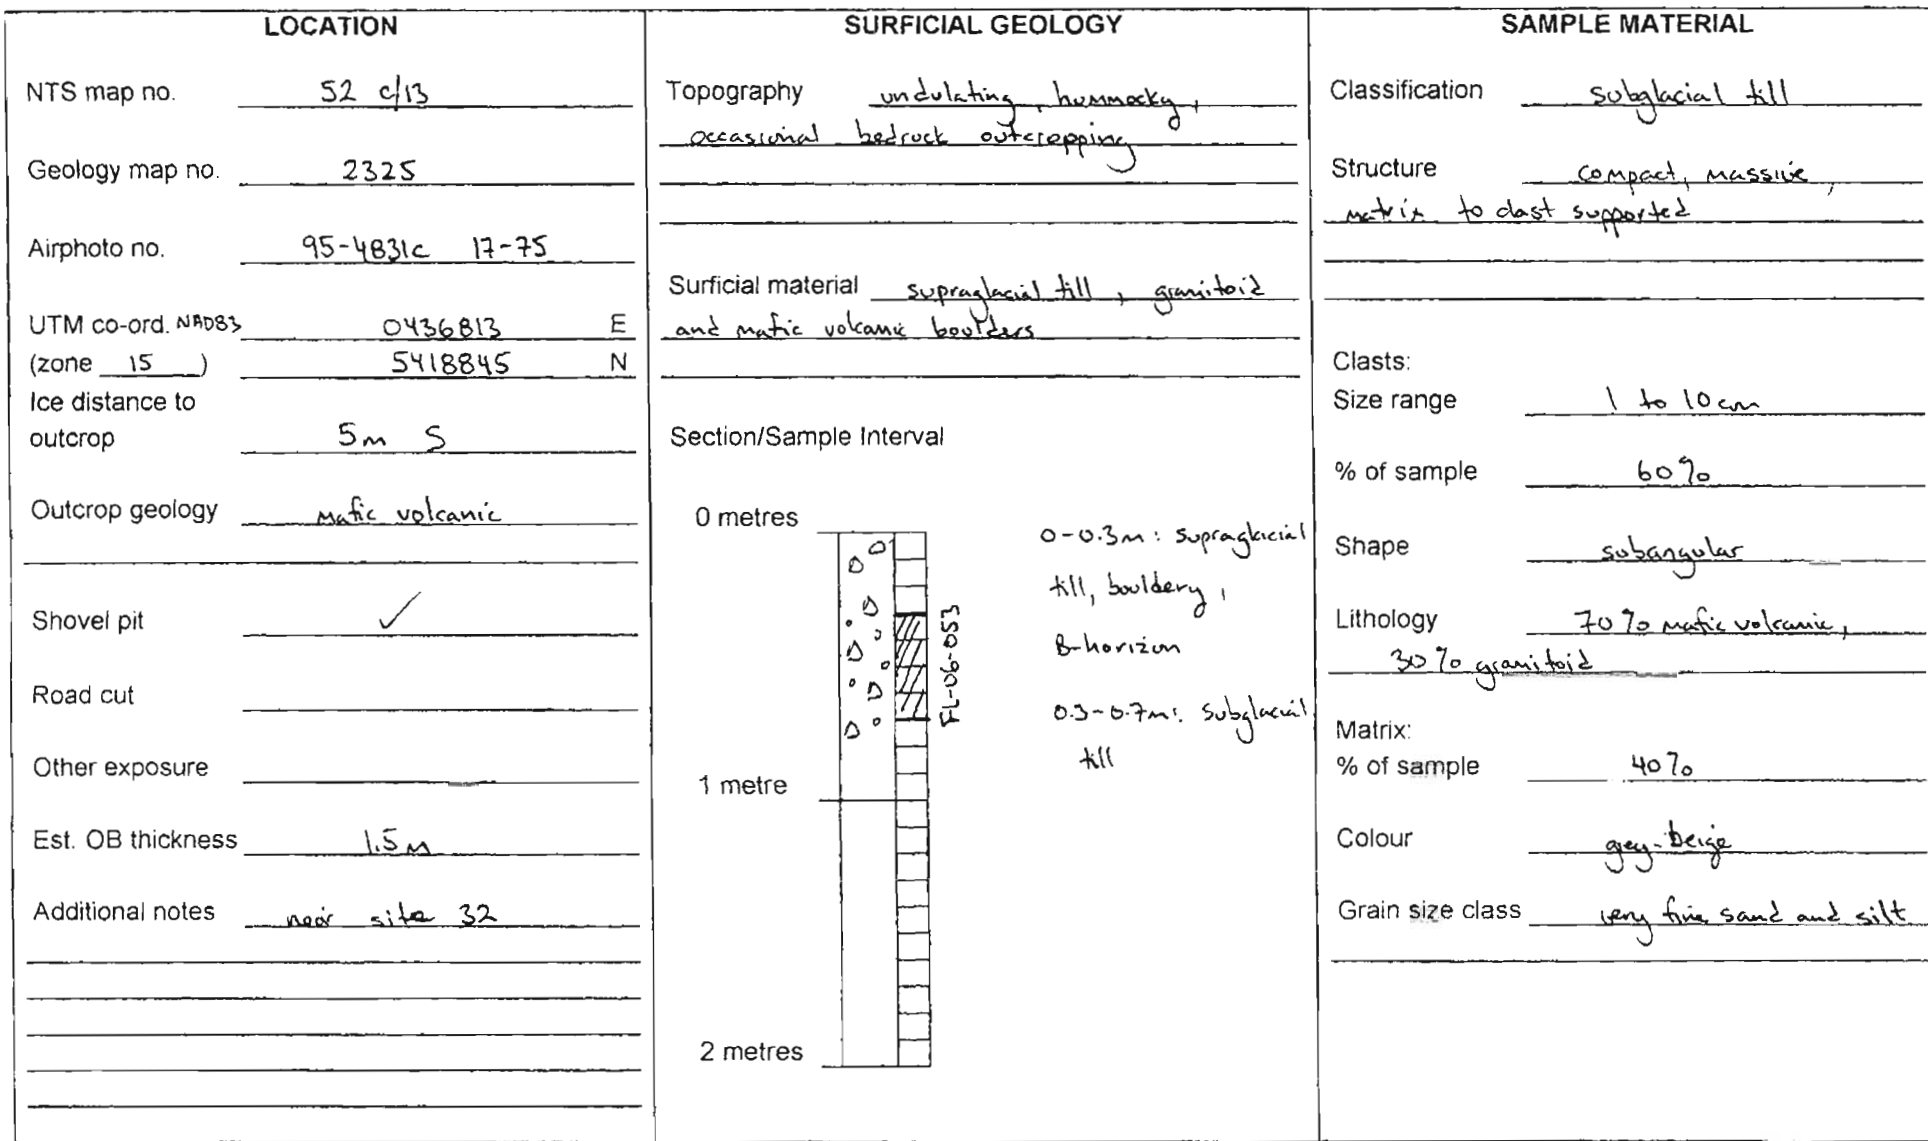 LOCATION
NTS map no. 52 c/13
Geology map no. 2325
Airphoto no. 95-4831c 17-75
UTM co-ord. NAD83 0436813 E
(zone 15 ) 5418845 N
Ice distance to
outcrop 5m S
Outcrop geology mafic volcanic
Shovel pit ✓
Road cut
Other exposure
Est. OB thickness 1.5m
Additional notes near site 32
SURFICIAL GEOLOGY
Topography undulating, hummocky,
occasional bedrock outcropping
Surficial material supraglacial till, granitoid
and mafic volcanic boulders
Section/Sample Interval
0 metres
1 metre
2 metres
FL-06-053
0-0.3m: supraglacial
till, bouldery,
B-horizon
0.3-0.7m: subglacial
till
SAMPLE MATERIAL
Classification subglacial till
Structure compact, massive,
matrix to clast supported
Clasts:
Size range 1 to 10 cm
% of sample 60%
Shape subangular
Lithology 70% mafic volcanic,
30% granitoid
Matrix:
% of sample 40%
Colour grey-beige
Grain size class very fine sand and silt